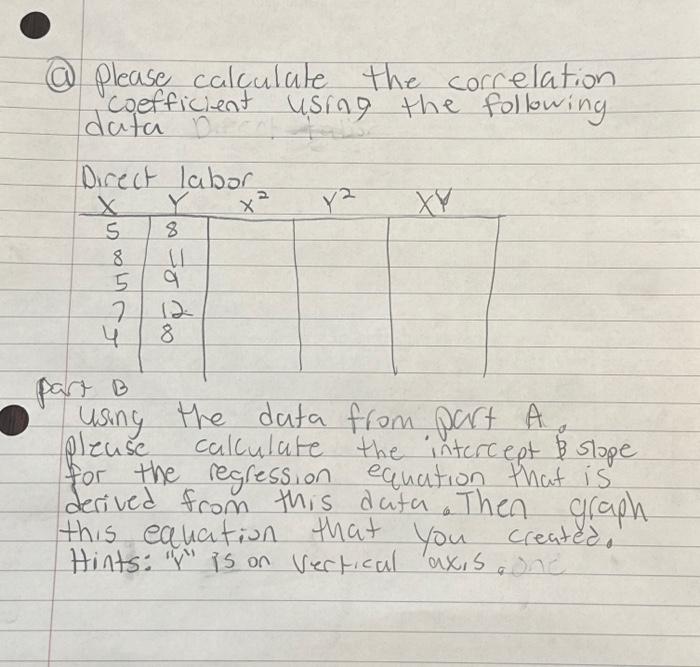 @ please calculate the correlation
coefficient using the following
data
Direct labor
X Y X² Y² XY
5 8
8 11
5 9
7 12
4 8
part B
using the data from part A.
please calculate the intercept & slope
for the regression equation that is
derived from this data. Then graph
this equation that you created.
Hints: "Y" is on vertical axis.